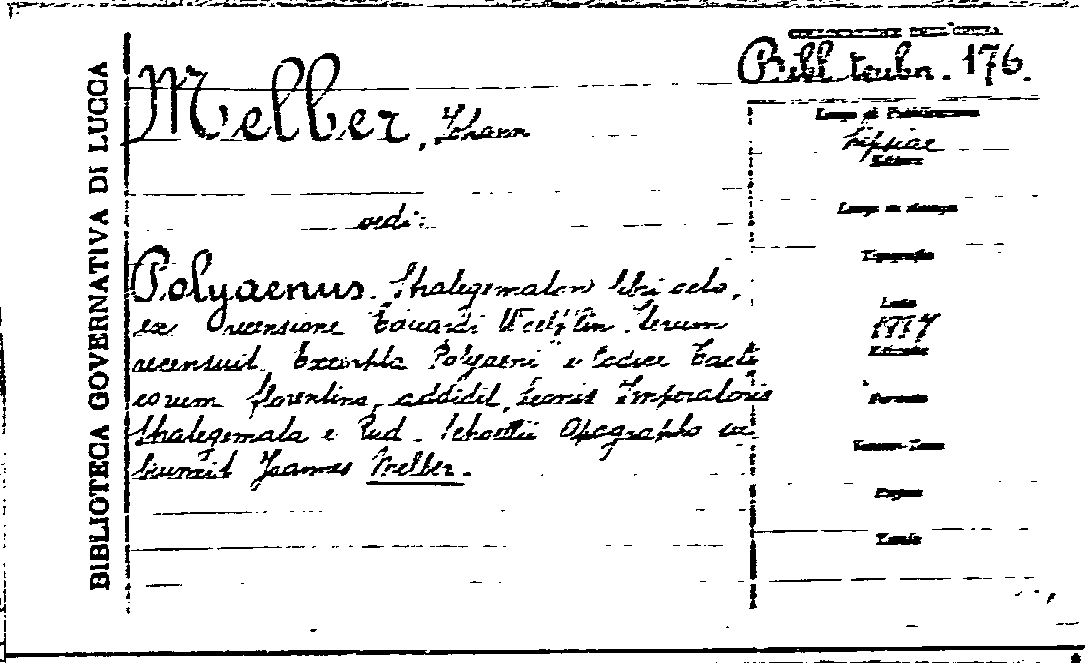 BIBLIOTECA GOVERNATIVA DI LUCCA
Bibl. teubn. 176.
Melber, Johann
vedi:
Polyaenus. Strategematon libri octo,
ex recensione Eduardi Woelfflin iterum
recensuit. Excerpta Polyaeni e codice Tacti
corum florentino addidit, Leonis Imperatoris
Strategemata e Rud. Schoellii apographo su
biunxit Joannes Melber.
Luogo di Pubblicazione
Lipsiae
Editore
Luogo di stampa
Tipografia
Data
Formato
Pagine
Tavole